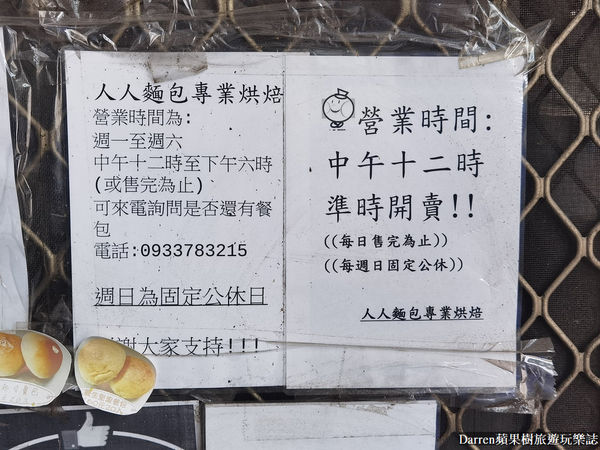 人人麵包專業烘焙
營業時間為:
週一至週六
中午十二時至下午六時
(或售完為止)
可來電詢問是否還有餐
包
電話:0933783215
週日為固定公休日
謝大家支持!!!
營業時間:
中午十二時
準時開賣!!
((每日售完為止))
((每週日固定公休))
人人麵包專業烘焙
Darren蘋果樹旅遊玩樂誌